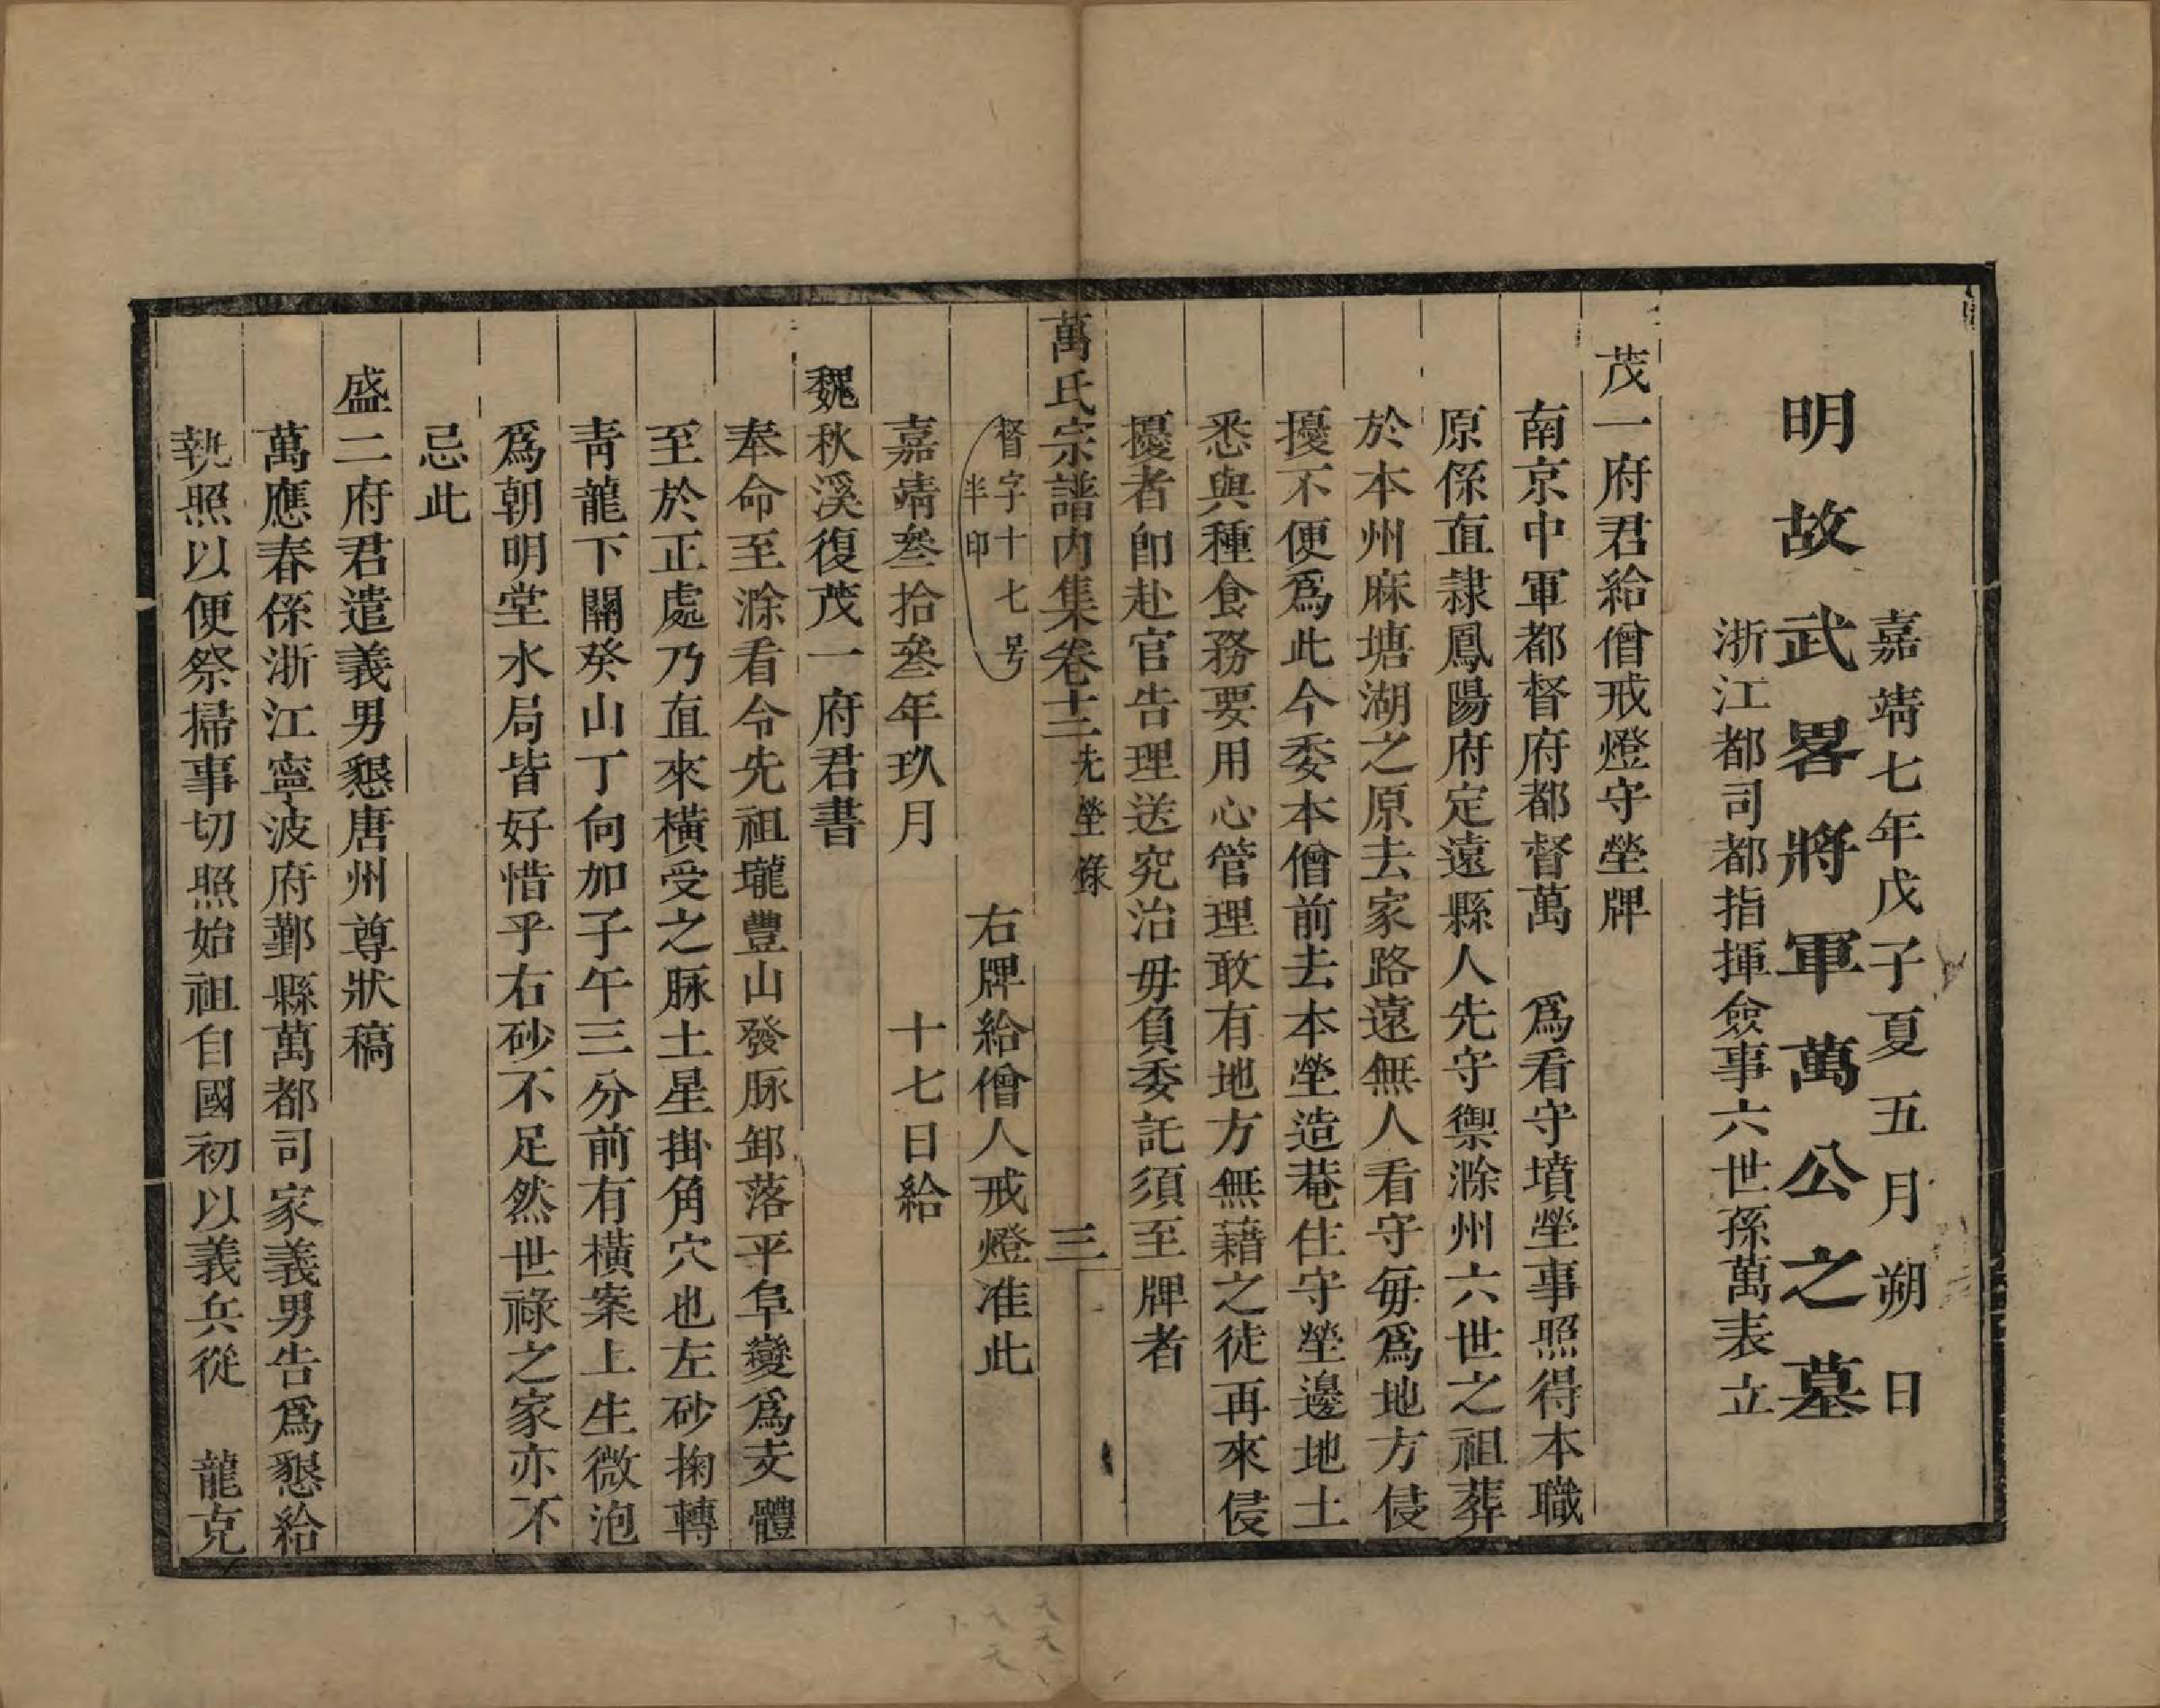 嘉靖七年戊子夏五月朔日
明故武畧將軍萬公之墓
浙江都司都指揮僉事六世孫萬表立
茂一府君給僧戒燈守塋牌
南京中軍都督府都督萬　爲看守墳塋事照得本職
原係直隸鳳陽府定遠縣人先守禦滁州六世之祖葬
於本州麻塘湖之原去家路遠無人看守毎爲地方侵
擾不便爲此今委本僧前去本塋造菴住守塋邊地土
悉與種食務要用心管理敢有地方無藉之徒再來侵
擾者卽赴官告理送究治毋負委託須至牌者
萬氏宗譜内集卷十三先塋錄　三
督字十七号
半印
右牌給僧人戒燈准此
嘉靖叁拾叁年玖月　十七日給
魏秋溪復茂一府君書
奉命至滁看令先祖壠豐山發脉卸落平阜變爲支體
至於正處乃直來橫受之脉土星掛角穴也左砂掬轉
青龍下關癸山丁向加子午三分前有橫案上生微泡
爲朝明堂水局皆好惜乎右砂不足然世祿之家亦不
忌此
盛二府君遣義男懇唐州尊狀稿
萬應春係浙江寧波府鄞縣萬都司家義男告爲懇給
執照以便祭掃事切照始祖自國初以義兵從　龍克